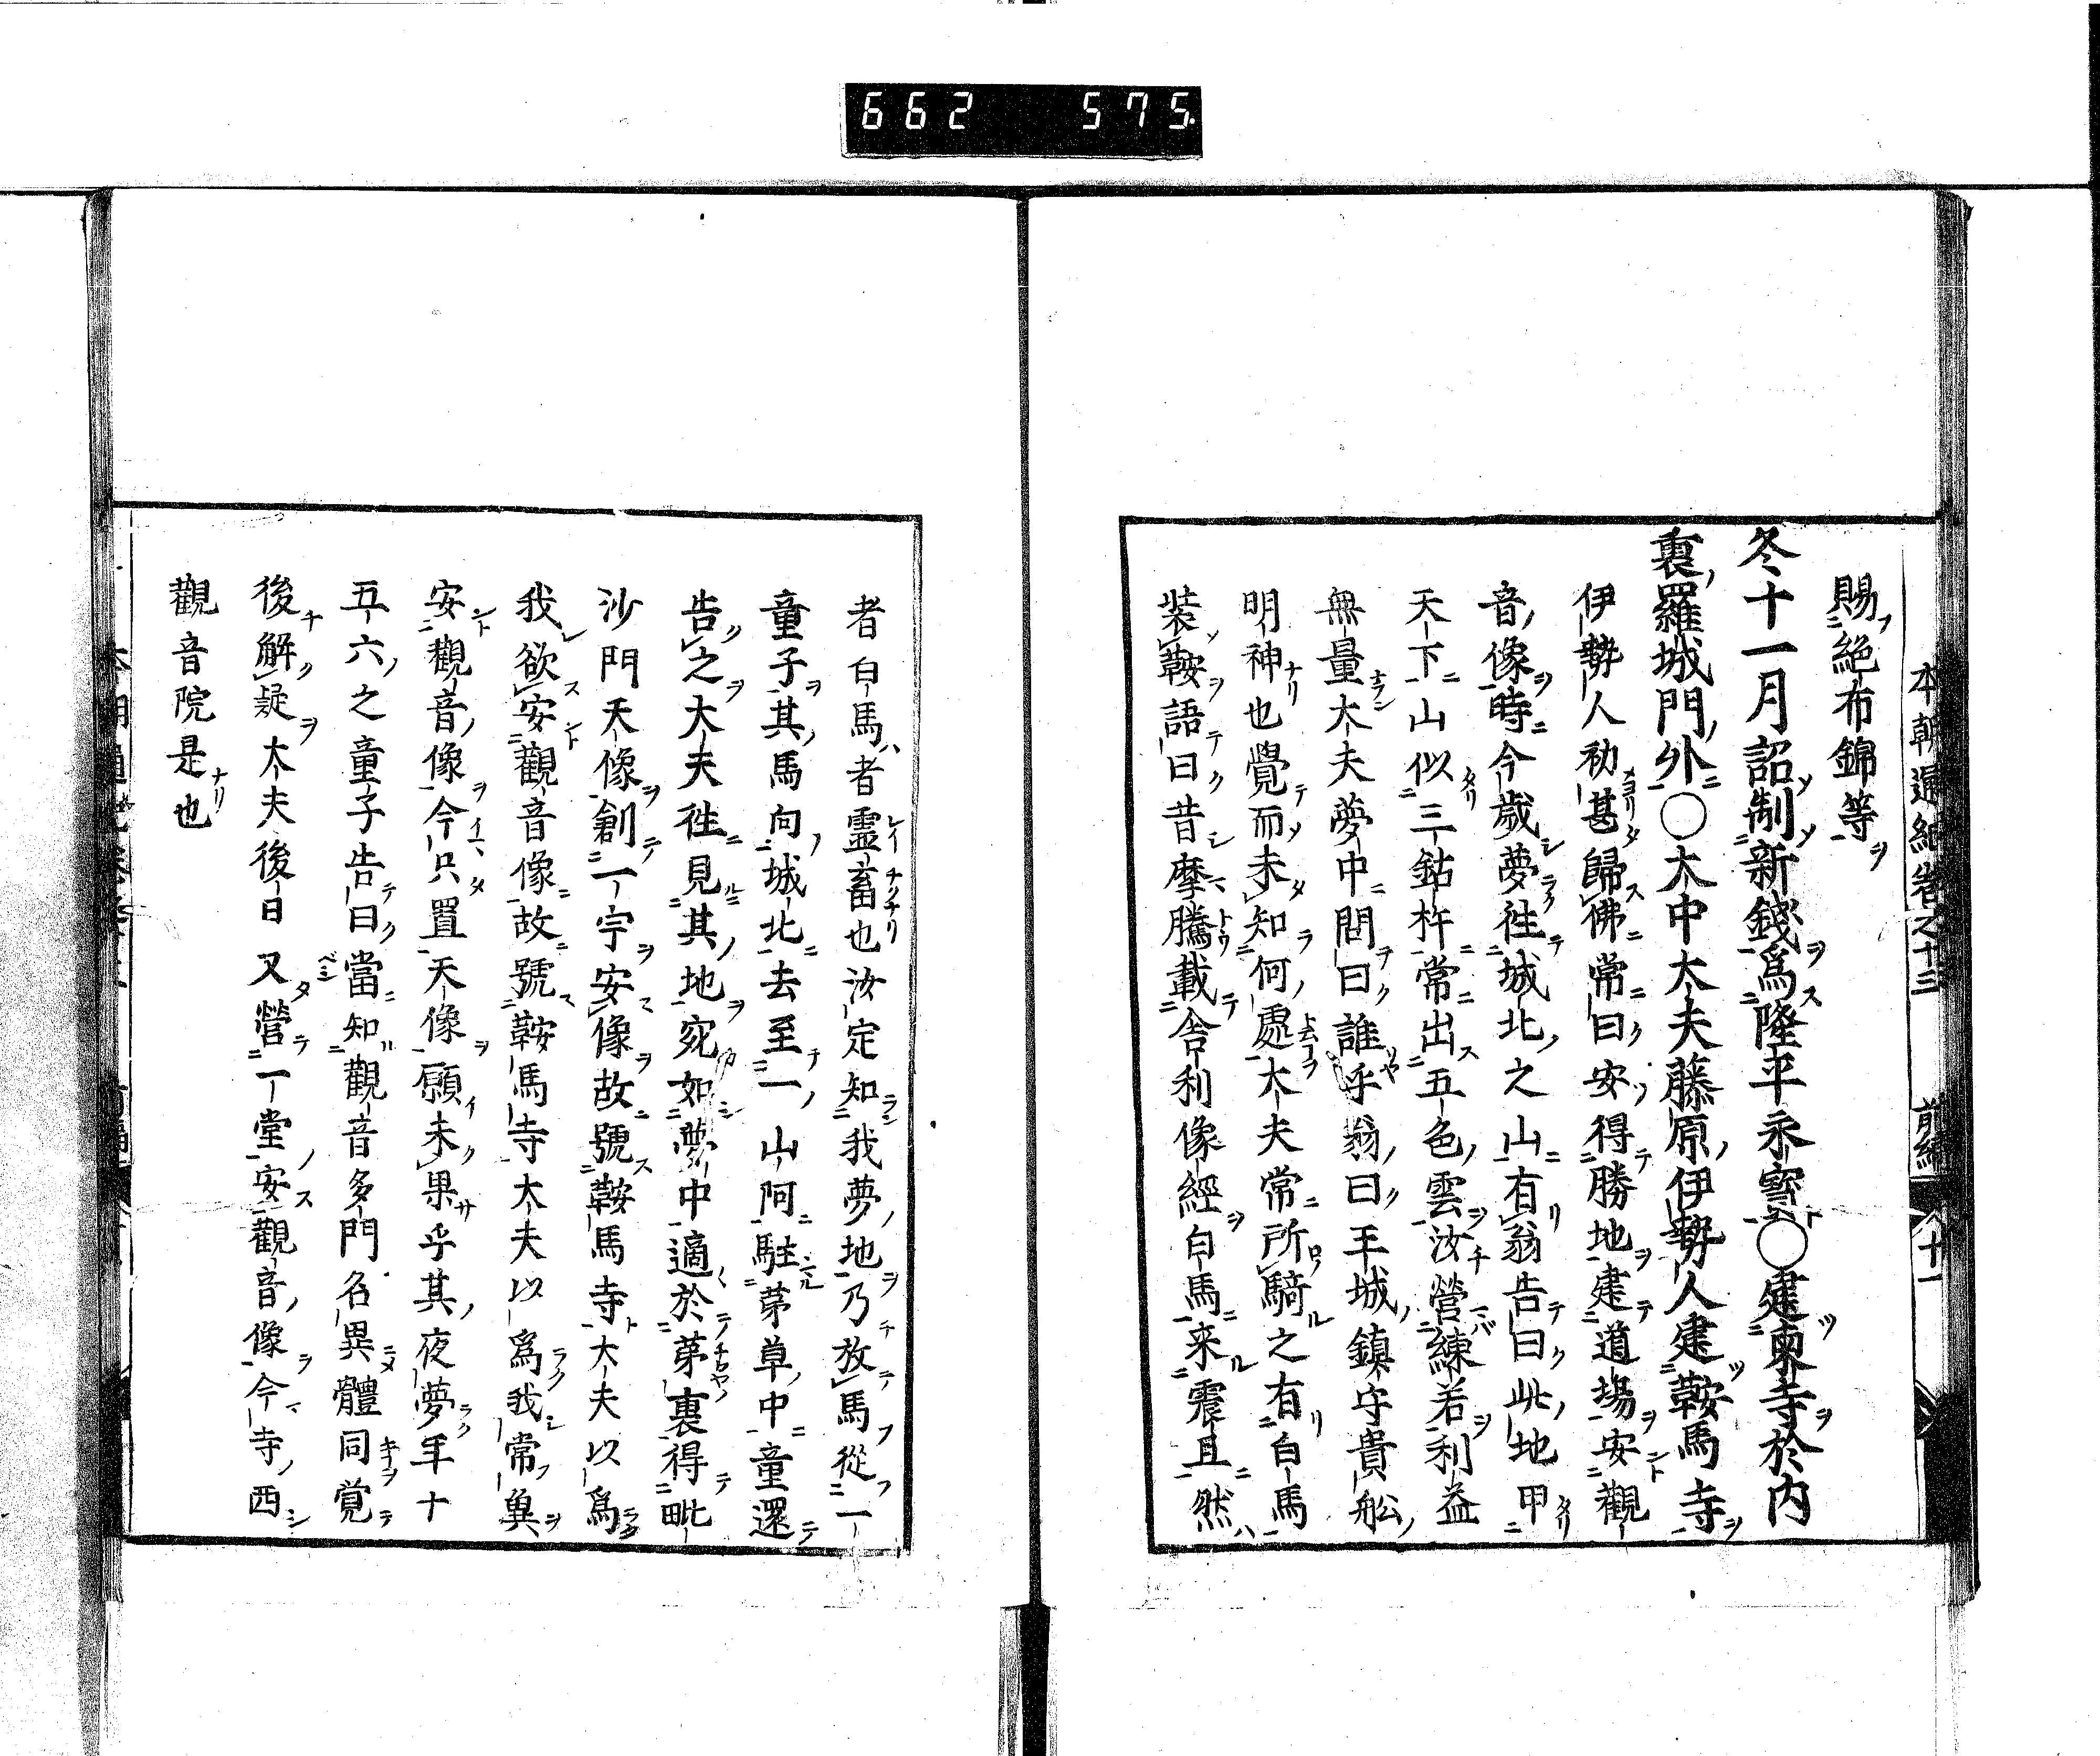 662 575.
本朝通紀卷之十三 前編 十一
賜絁布錦等
冬十一月詔制新錢爲隆平永寳○建東寺於内
裏羅城門外○太中大夫藤原伊勢人建鞍馬寺
伊勢人初甚歸佛常曰安得勝地建道場安觀
音像時今歲夢徃城北之山有翁告曰此地甲
天下山似三鈷杵常出五色雲汝營練若利益
無量大夫夢中問曰誰乎翁曰王城鎮守貴舩
明神也覺而未知何處大夫常所騎之有白馬
装鞍語曰昔摩騰載舎利像經白馬来震旦然
者白馬者霊畜也汝定知我夢地乃放馬從一
童子其馬向城北去至一山阿駐茅草中童還
告之大夫徃見其地宛如夢中適於茅裏得毗
沙門天像創一宇安像故號鞍馬寺大夫以爲
我欲安觀音像故號鞍馬寺大夫以爲我常兾
安觀音像今只置天像願未果乎其夜夢年十
五六之童子告曰當知觀音多門名異體同覚
後解疑大夫後日又營一堂安觀音像今寺西
觀音院是也